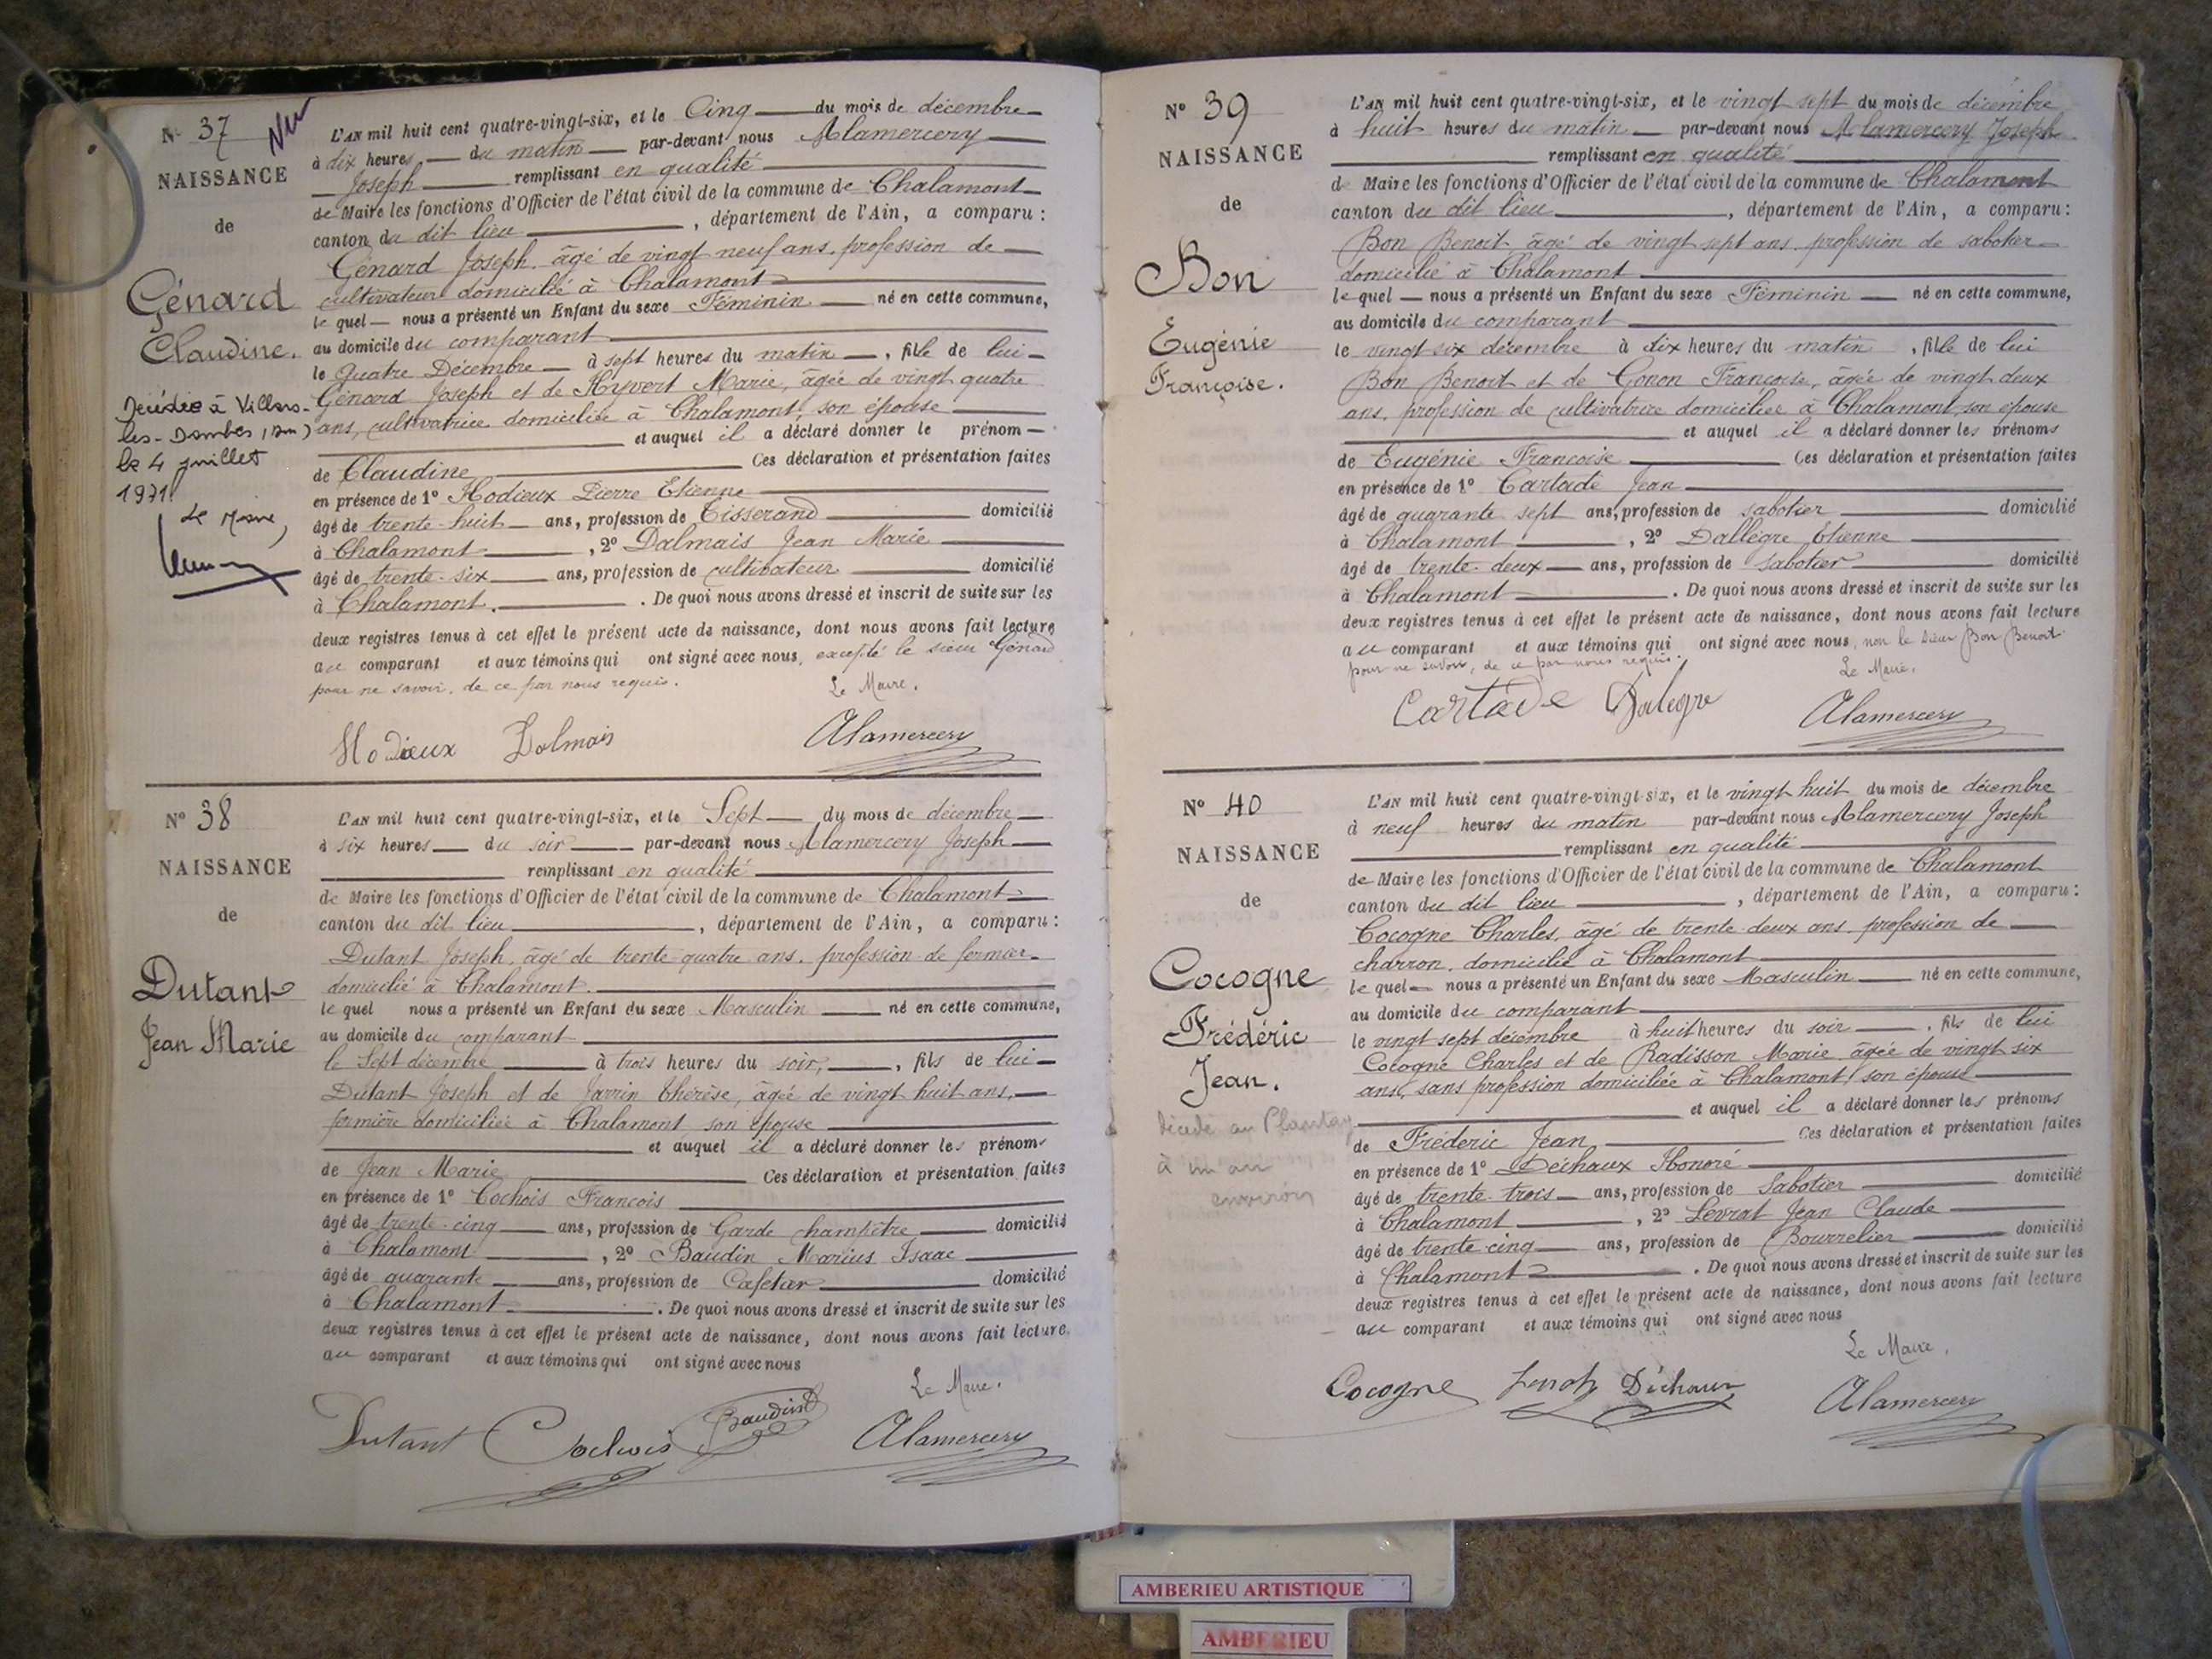 N° 37
NAISSANCE
de
Génard
Claudine.
Décédée à Villars-
les-Dombes (Ain)
le 4 juillet
1971.
Le Maire,
L'AN mil huit cent quatre-vingt-six, et le Cinq du mois de décembre
à dix heures du matin par-devant nous Alamercery
Joseph remplissant en qualité
de Maire les fonctions d'Officier de l'état civil de la commune de Chalamont
canton du dit lieu, département de l'Ain, a comparu :
Génard Joseph, âgé de vingt neuf ans, profession de
cultivateur domicilié à Chalamont
le quel nous a présenté un Enfant du sexe Féminin né en cette commune,
au domicile du comparant
le Quatre Décembre à sept heures du matin, fille de lui
Génard Joseph et de Hyvert Marie, âgée de vingt quatre
ans, cultivatrice domiciliée à Chalamont, son épouse
et auquel il a déclaré donner le prénom
de Claudine Ces déclaration et présentation faites
en présence de 1° Hodieux Pierre Etienne
âgé de trente-huit ans, profession de Tisserand domicilié
à Chalamont, 2° Dalmais Jean Marie
âgé de trente-six ans, profession de cultivateur domicilié
à Chalamont. De quoi nous avons dressé et inscrit de suite sur les
deux registres tenus à cet effet le présent acte de naissance, dont nous avons fait lecture
au comparant et aux témoins qui ont signé avec nous, excepté le sieur Génard
pour ne savoir, de ce par nous requis.
Le Maire.
Hodieux Dalmais Alamercery
N° 38
NAISSANCE
de
Dutant
Jean Marie
L'AN mil huit cent quatre-vingt-six, et le Sept du mois de décembre
à six heures du soir par-devant nous Alamercery Joseph
remplissant en qualité
de Maire les fonctions d'Officier de l'état civil de la commune de Chalamont
canton du dit lieu, département de l'Ain, a comparu :
Dutant Joseph, âgé de trente quatre ans, profession de fermier
domicilié à Chalamont.
le quel nous a présenté un Enfant du sexe Masculin né en cette commune,
au domicile du comparant
le Sept décembre à trois heures du soir, fils de lui
Dutant Joseph et de Javrin Thérèse, âgée de vingt huit ans,
fermière domiciliée à Chalamont son épouse
et auquel il a déclaré donner les prénoms
de Jean Marie Ces déclaration et présentation faites
en présence de 1° Cochois François
âgé de trente-cinq ans, profession de Garde champêtre domicilié
à Chalamont, 2° Baudin Marius Isaac
âgé de quarante ans, profession de Cafetier domicilié
à Chalamont. De quoi nous avons dressé et inscrit de suite sur les
deux registres tenus à cet effet le présent acte de naissance, dont nous avons fait lecture.
au comparant et aux témoins qui ont signé avec nous
Le Maire.
Dutant Cochois Baudin Alamercery
N° 39
NAISSANCE
de
Bon
Eugénie
Françoise.
L'AN mil huit cent quatre-vingt-six, et le vingt sept du mois de décembre
à huit heures du matin par-devant nous Alamercery Joseph
remplissant en qualité
de Maire les fonctions d'Officier de l'état civil de la commune de Chalamont
canton du dit lieu, département de l'Ain, a comparu :
Bon Benoit âgé de vingt sept ans profession de sabotier
domicilié à Chalamont
le quel nous a présenté un Enfant du sexe Féminin né en cette commune,
au domicile du comparant
le vingt-six décembre à dix heures du matin, fille de lui
Bon Benoit et de Gonon Françoise, âgée de vingt deux
ans, profession de cultivatrice domiciliée à Chalamont, son épouse
et auquel il a déclaré donner les prénoms
de Eugénie Françoise Ces déclaration et présentation faites
en présence de 1° Cartade Jean
âgé de quarante sept ans, profession de sabotier domicilié
à Chalamont, 2° Dallègre Etienne
âgé de trente-deux ans, profession de sabotier domicilié
à Chalamont. De quoi nous avons dressé et inscrit de suite sur les
deux registres tenus à cet effet le présent acte de naissance, dont nous avons fait lecture
au comparant et aux témoins qui ont signé avec nous, non le sieur Bon Benoit
pour ne savoir, de ce par nous requis.
Le Maire.
Cartade Dalègre Alamercery
N° 40
NAISSANCE
de
Cocogne
Frédéric
Jean.
décédé au Plantay
à un an
environ
L'AN mil huit cent quatre-vingt-six, et le vingt huit du mois de décembre
à neuf heures du matin par-devant nous Alamercery Joseph
remplissant en qualité
de Maire les fonctions d'Officier de l'état civil de la commune de Chalamont
canton du dit lieu, département de l'Ain, a comparu :
Cocogne Charles, âgé de trente-deux ans, profession de
charron, domicilié à Chalamont
le quel nous a présenté un Enfant du sexe Masculin né en cette commune,
au domicile du comparant
le vingt sept décembre à huit heures du soir, fils de lui
Cocogne Charles et de Radisson Marie âgée de vingt six
ans, sans profession domiciliée à Chalamont, son épouse
et auquel il a déclaré donner les prénoms
de Fréderic Jean Ces déclaration et présentation faites
en présence de 1° Déchaux Honoré
âgé de trente-trois ans, profession de Sabotier domicilié
à Chalamont, 2° Levrat Jean Claude
âgé de trente cinq ans, profession de Bourrelier domicilié
à Chalamont. De quoi nous avons dressé et inscrit de suite sur les
deux registres tenus à cet effet le présent acte de naissance, dont nous avons fait lecture
au comparant et aux témoins qui ont signé avec nous
Le Maire,
Cocogne Déchaux Alamercery
AMBERIEU ARTISTIQUE
AMBERIEU